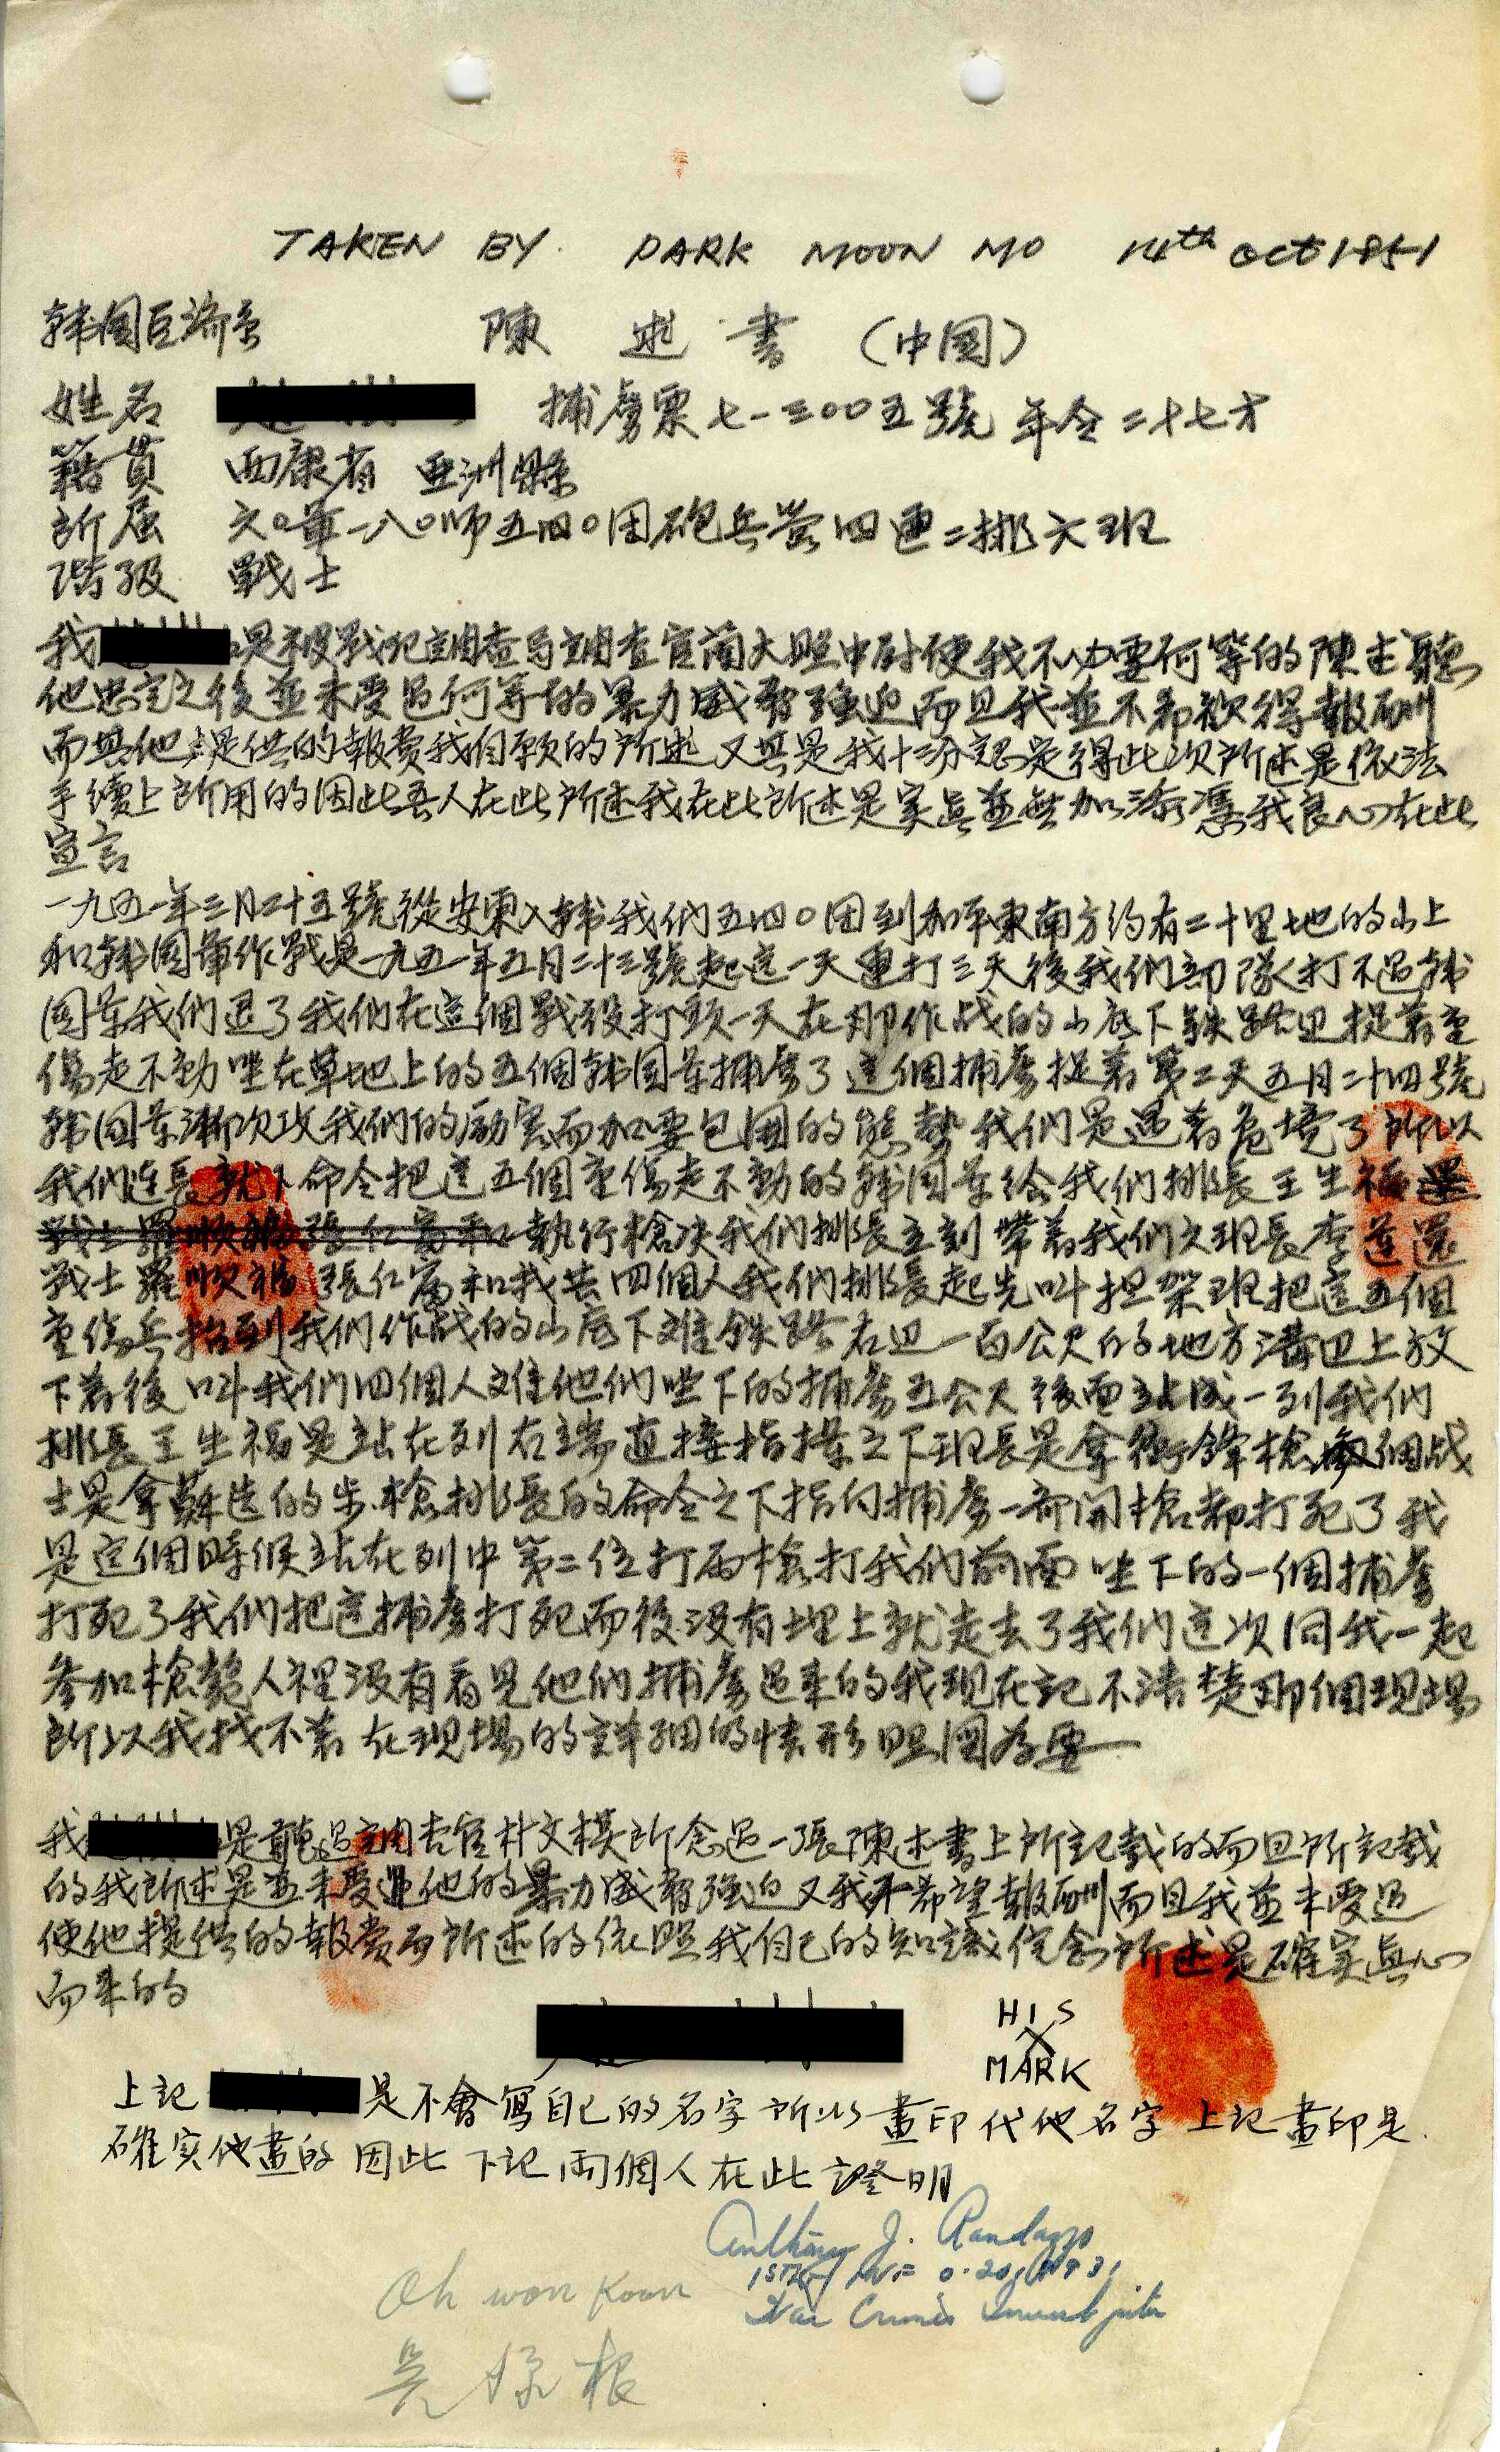 TAKEN BY PARK MOON MO 14th Oct 1951
韓國巨濟島 陳述書 (中國)
姓名 捕虜票七一三00五號 年令二十七才
籍貫 西康省 亜洲縣
所属 六0軍一八0师五四0团砲兵營四連二排六班
階級 戰士
我 是被戰犯調查局調查官蘭大照中尉使我不必要何等的陳述聽
他忠定之後並未受过何等的暴力威脅強迫而且我並不希欲得報酬
而其他提供的報賞我自願的所述 又其是我十分認是得此次所述是依法
手續上所用的因此吾人在此所述我在此所述是実真並無加添憑我良心在此
宣言
一九五一年三月二十五號從安東入韓我們五四0团到加平東南方約有二十里地的山上
和韓國軍作戰是一九五一年五月二十三號起這一天連打三天後我們部隊打不过韓
國军我們退了我們在這個戰役打頭一天在那作战的山底下鉄路边捉着重
傷走不動坐在草地上的五個韓国军捕虜了這個捕虜捉着第二天五月二十四號
韓国军漸次攻我們的厲害而加要包圍的態勢我們是遇着危境了所以
我們连長就下命令把這五個重傷走不動的韓国军给我們排長王生福還
戰士羅順福張仁富和執行槍决我們排長立刻帶着我們六班長李蓮還
戰士羅順福張仁富和我共四個人我們排長起先叫担架班把這五個
重傷兵抬到我們作战的山底下離鉄路右边一百公尺的地方溝边上放
下着後叫我們四個人離他們坐下的捕虜五公尺後面站成一列我們
排長王生福是站在列右端直接指揮之下班長是拿衝鋒槍每個战
士是拿蘇造的步槍排長的命令之下指向捕虜一齊開槍都打死了我
是這個時候站在列中第二位打两槍打我們前面坐下的一個捕虜
打死了我們把這捕虜打死而後没有埋上就走去了我們這次同我一起
参加槍斃人裡没有看見他們捕虜过来的我現在記不清楚那個現場
所以我找不着在現場的詳細的情形 照圖为要
我 是聽过調查官朴文模所念过一張陳述書上所記載的而且所記載
的我所述是並未受过他的暴力威脅強迫又我不希望報酬而且我並未受过
使他提供的報賞而所述的依照我自己的知識信念所述是確実真心
而来的
HIS
X
MARK
上記 是不會寫自己的名字所以畫印代他名字上記畫印是
確实他畫的因此下記两個人在此證明
Anthony J. Randazzo
1st Lt Inf
War Crimes Investigator
Oh won Koon
吳 根